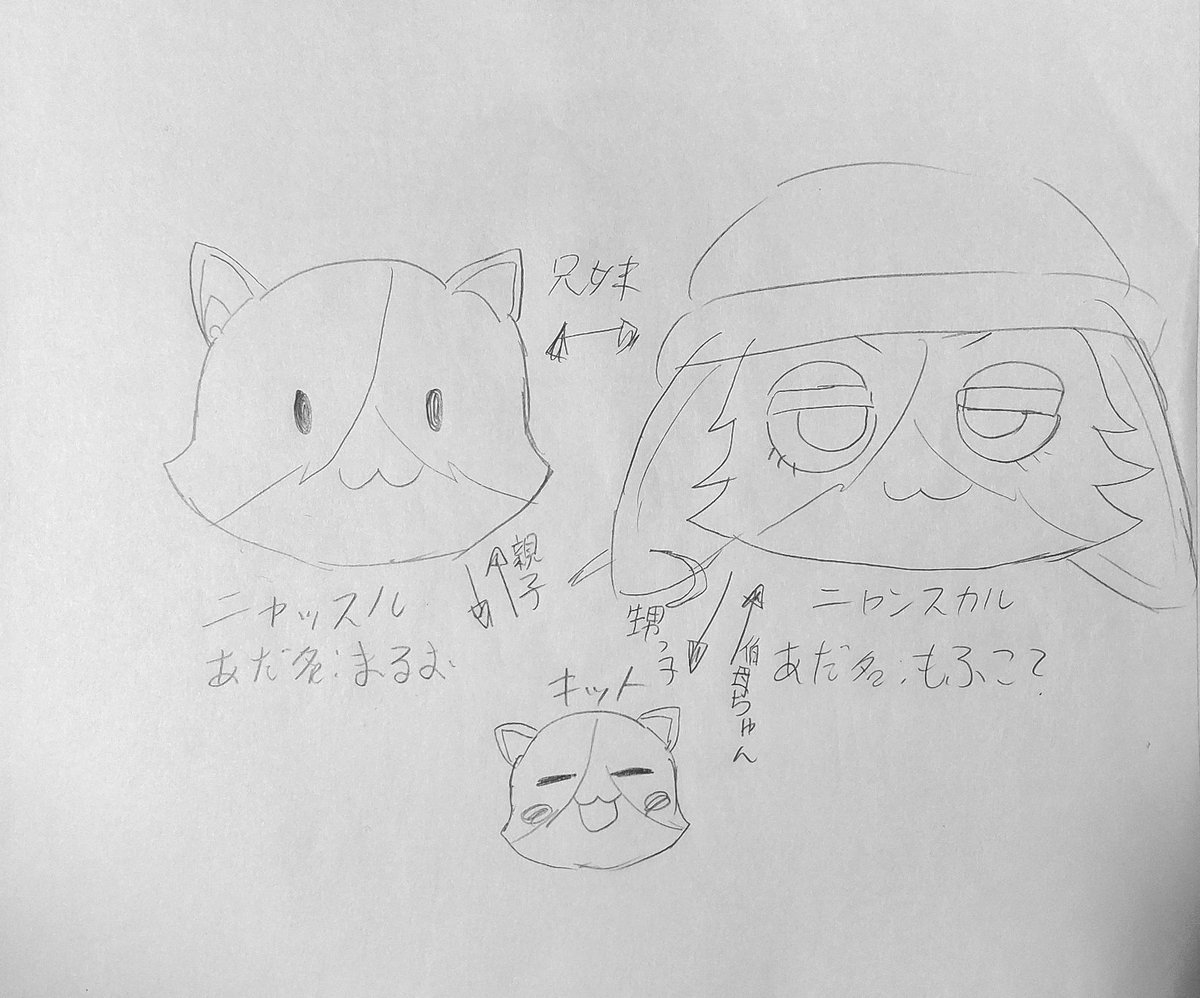 兄妹
親子
ニャッスル
あだ名:まるお
ニャンスカル
あだ名:もふこ?
甥っ子
伯母ちゃん
キット